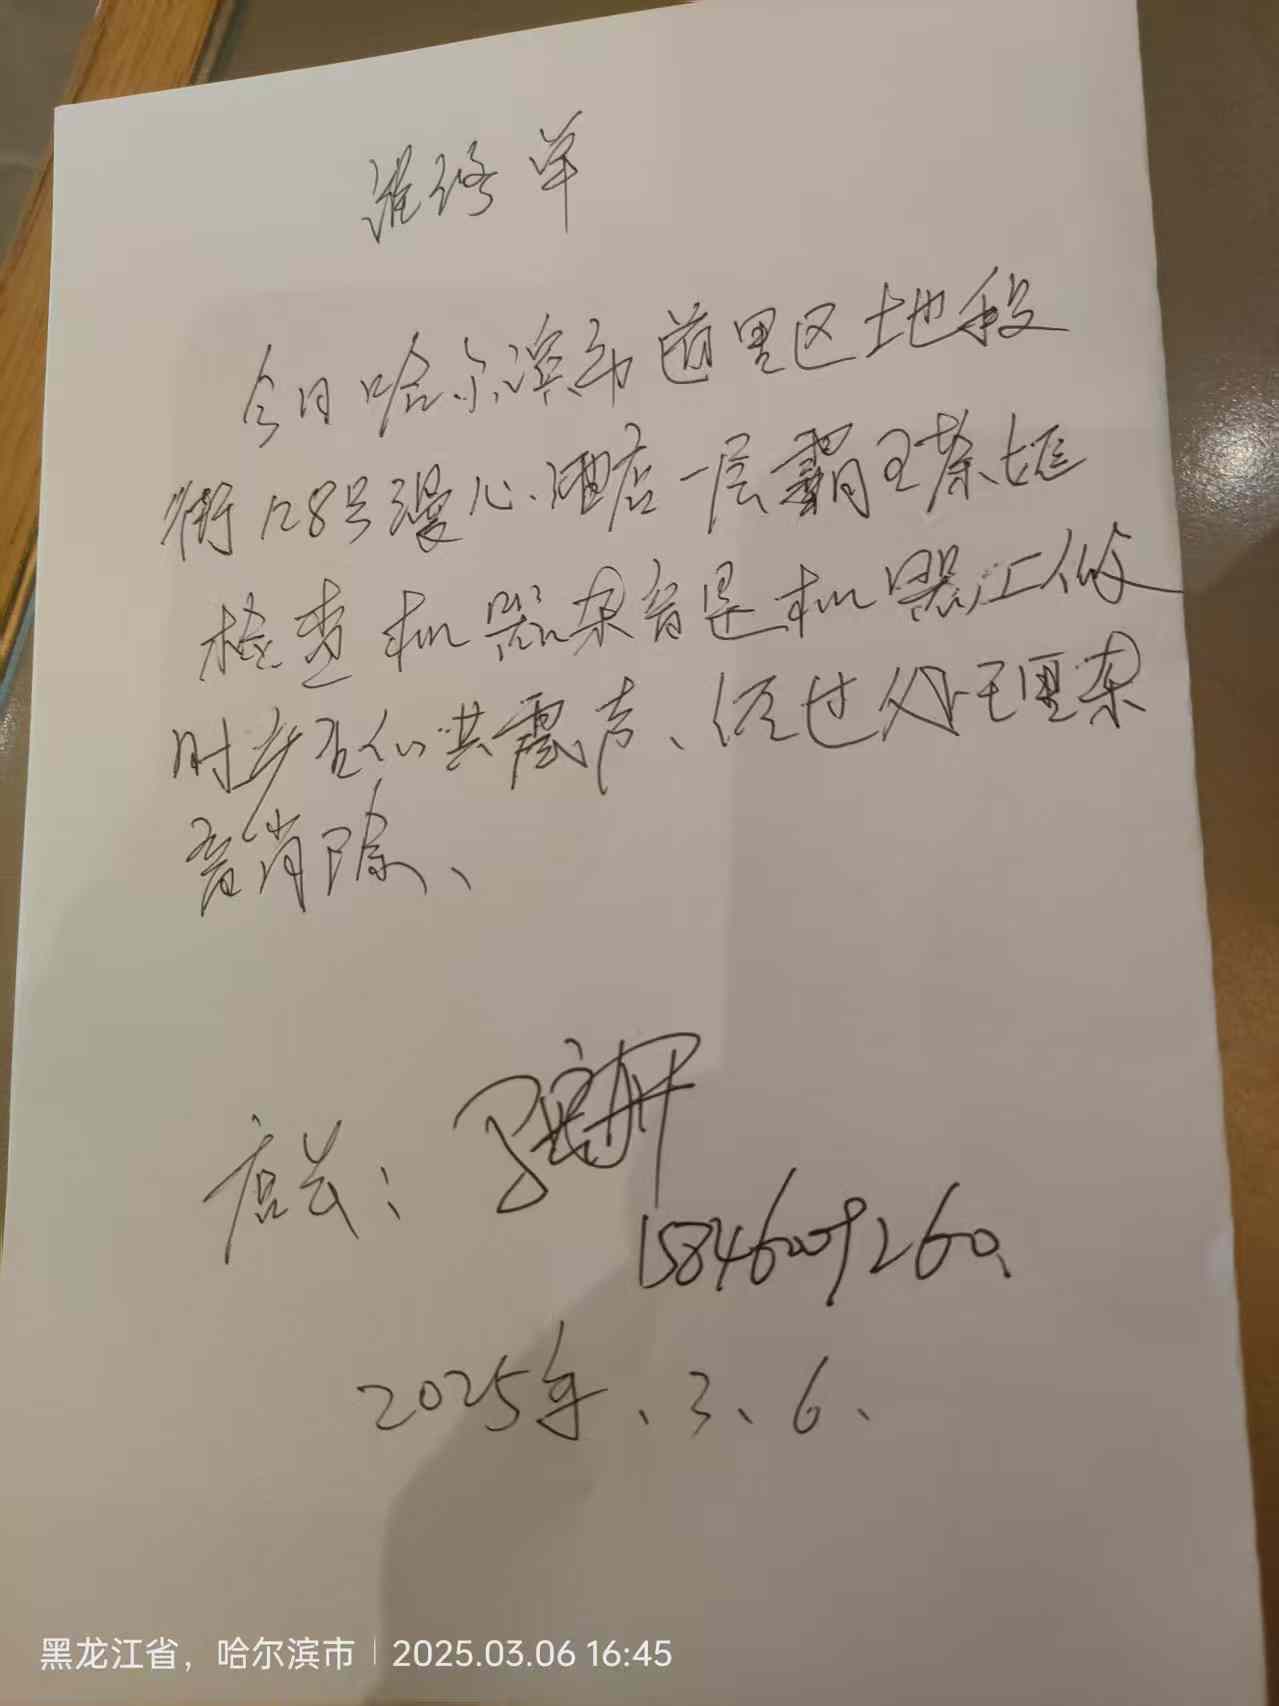 维修单
今日哈尔滨市道里区地段
街128号漫心酒店一层霸王茶姬
检查机器杂音是机器工作
时产生的共震声、经过处理杂
音消除、
店长：
15846009260
2025年、3、6、
黑龙江省，哈尔滨市 | 2025.03.06 16:45